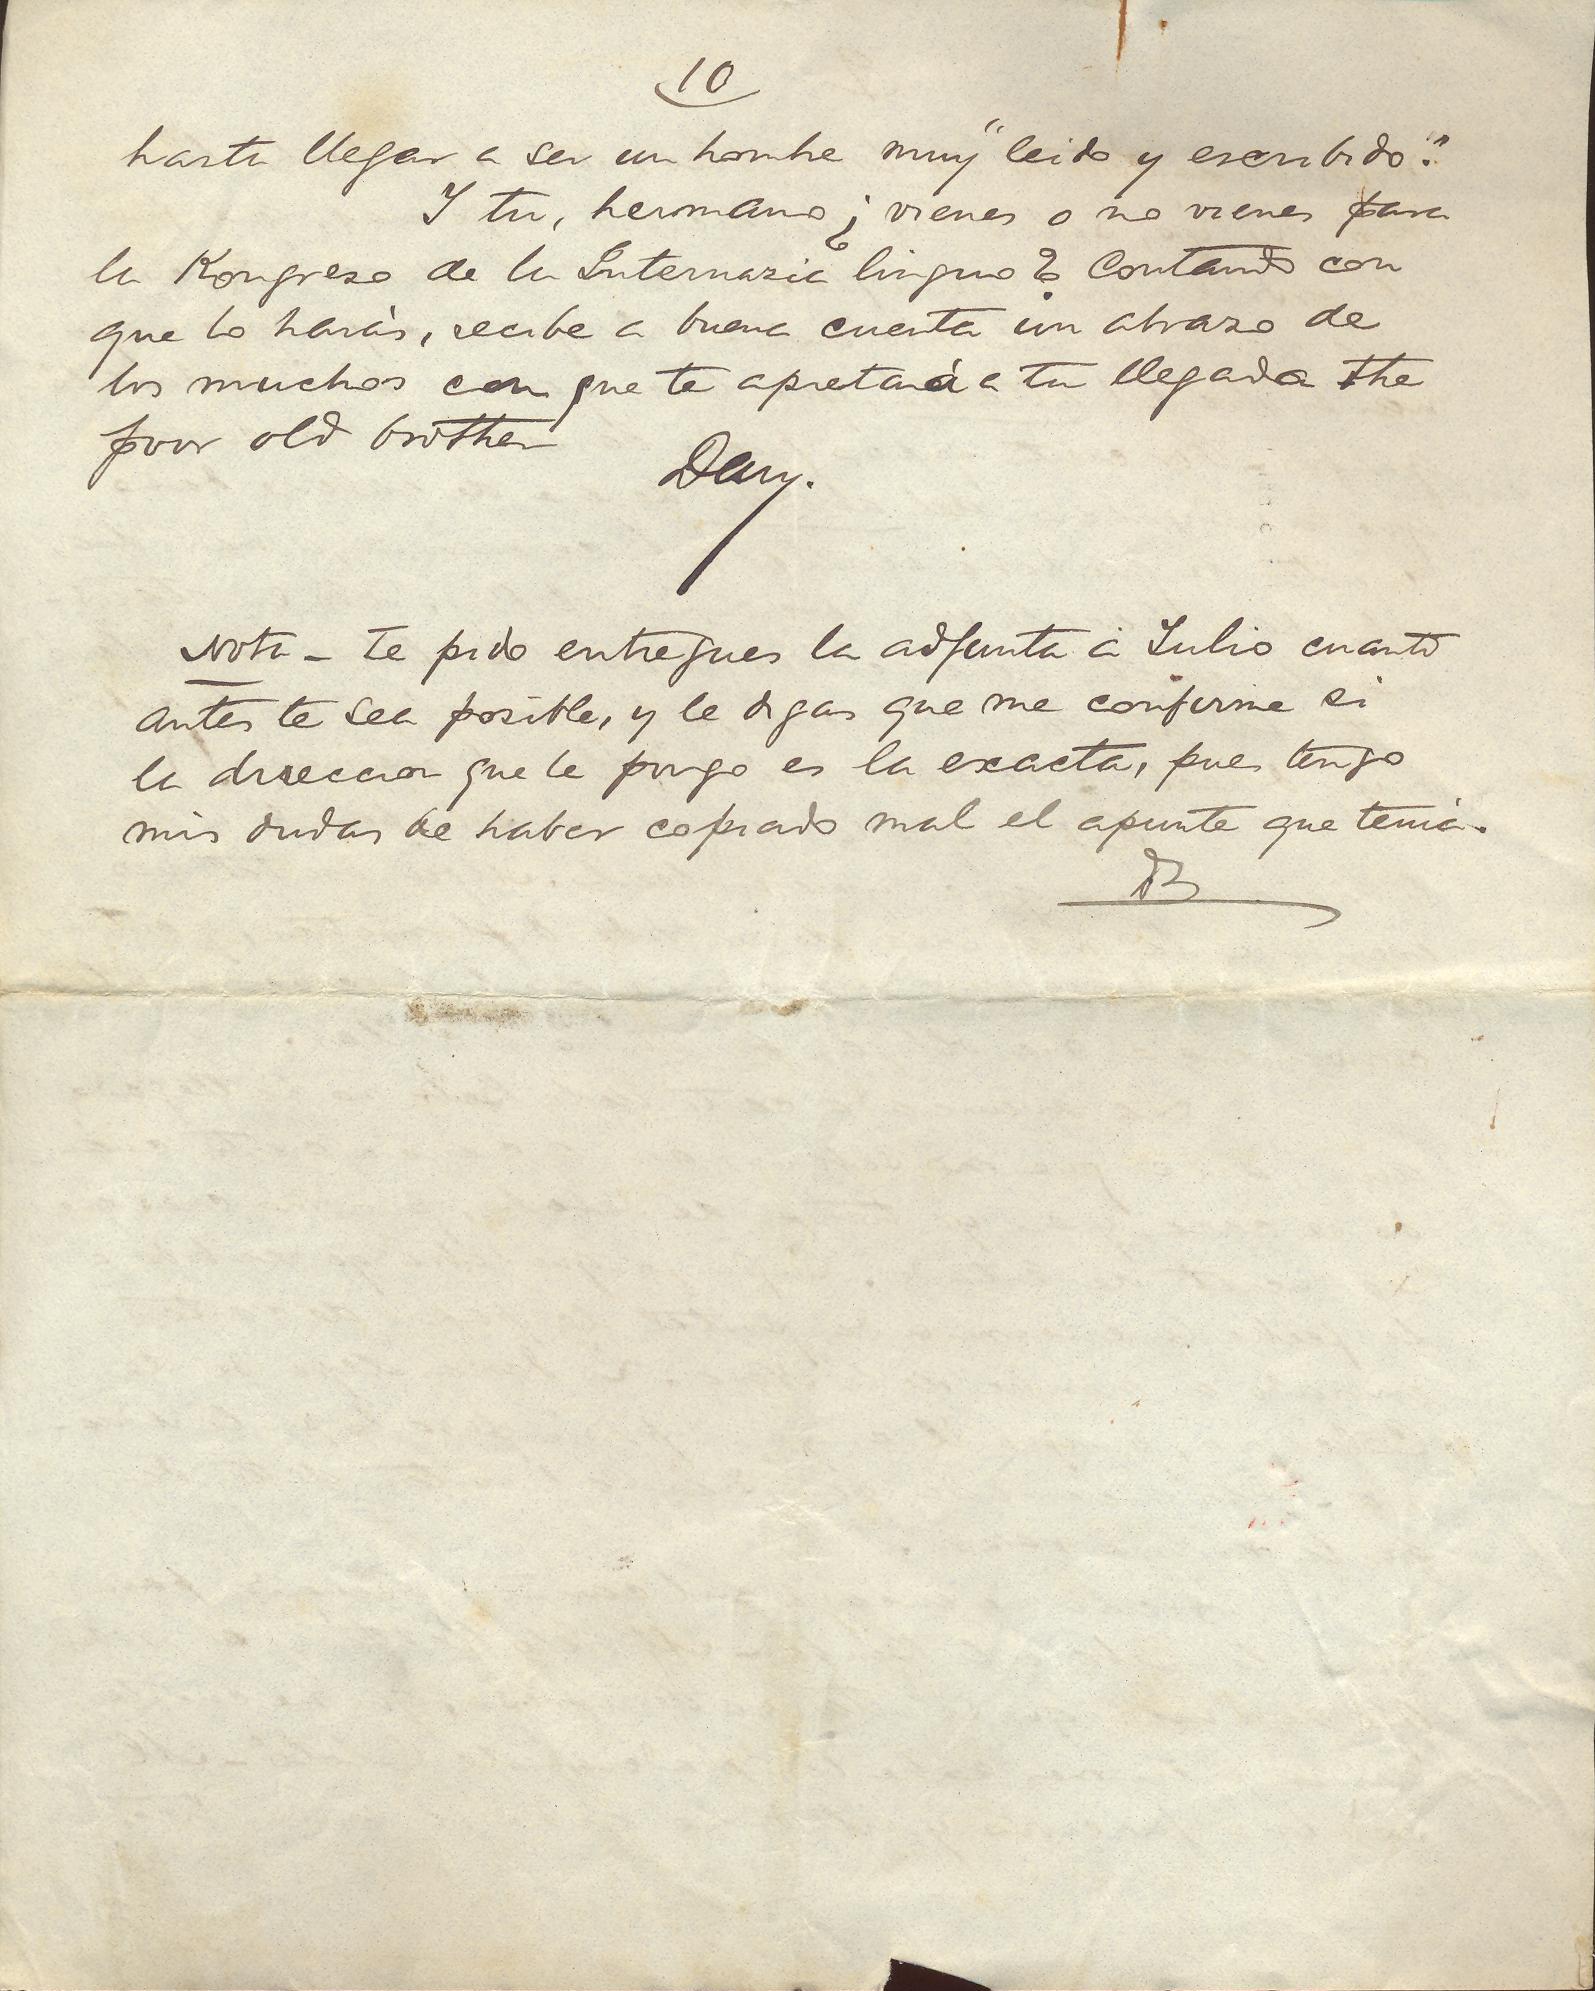 10
hasta llegar a ser un hombre muy "leido y escribido".
Y tu, hermano ¿vienes o no vienes para
la Kongreso de la Internazia linguo? Contando con
que lo harás, recibe a buena cuenta un abrazo de
los muchos con que te apretará a tu llegada the
poor old brother
Dary.
Nota - te pido entregues la adjunta á Julio cuanto
antes te sea posible, y le digas que me confirme si
la direccion que le pongo es la exacta, pues tengo
mis dudas de haber copiado mal el apunte que tenia.
DB